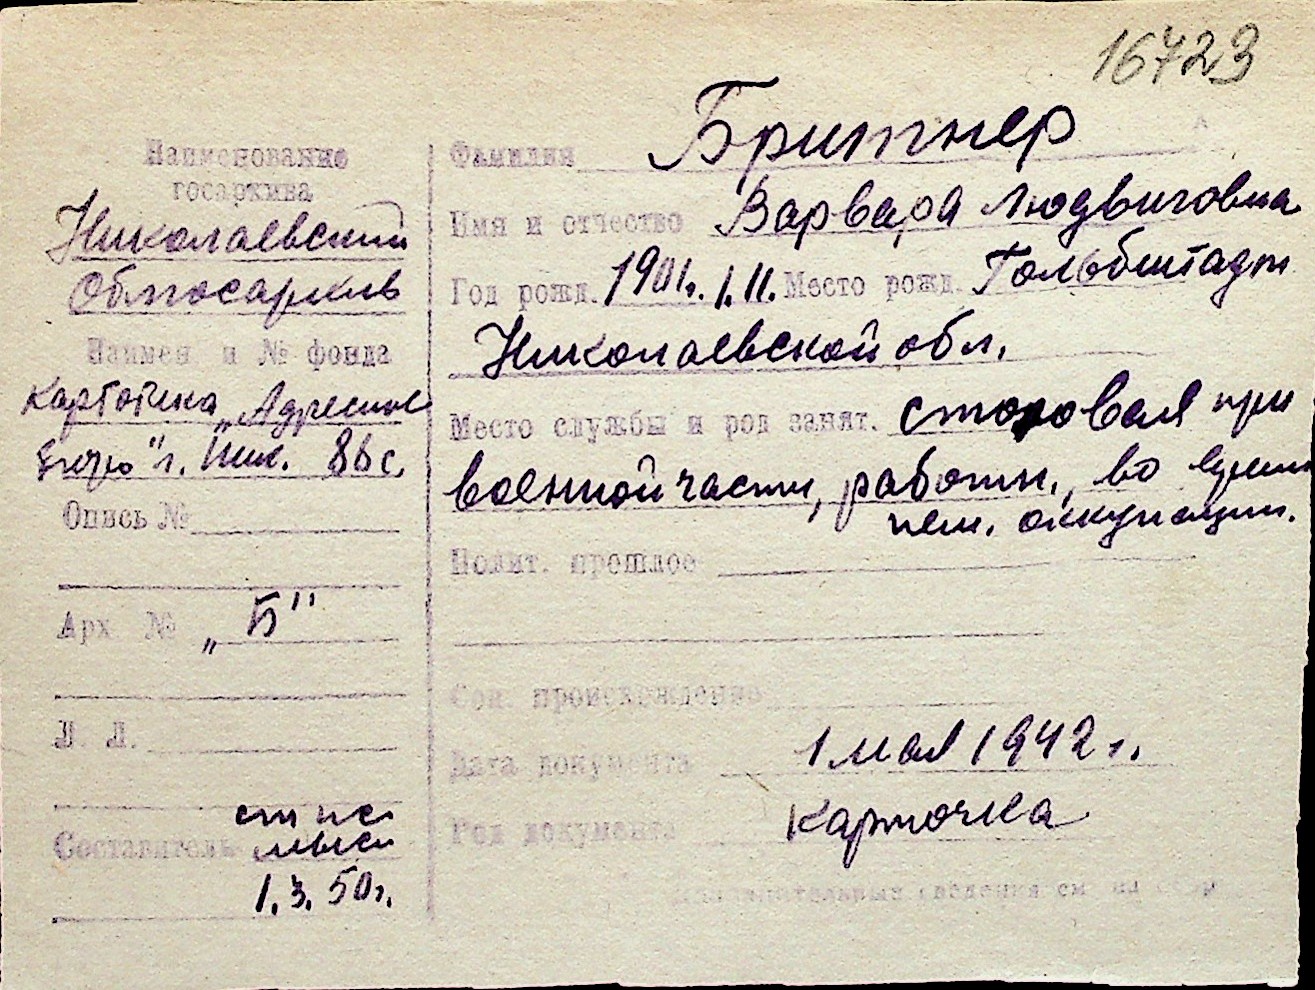 16723
Наименование
госархива
Николаевский
Облгосархив
Наимен и № фонда
картотека „Адресное
Бюро" г. Ник. 86 с.
Опись №
Арх № „Б"
Л. Л.
Составитель
1.3.50г.
Фамилия Бритнер
Имя и отчество Варвара Людвиговна
Год рожд. 1901г. 1.11. Место рожд. Гольбштадт
Николаевской обл.
Место службы и род занят. столовая при
военной части, работн., во время
нем. оккупации.
Полит. прошлое
Соц. происхождение
Дата документа 1 мая 1942 г.
Род документа карточка
Дополнительные сведения см на обор